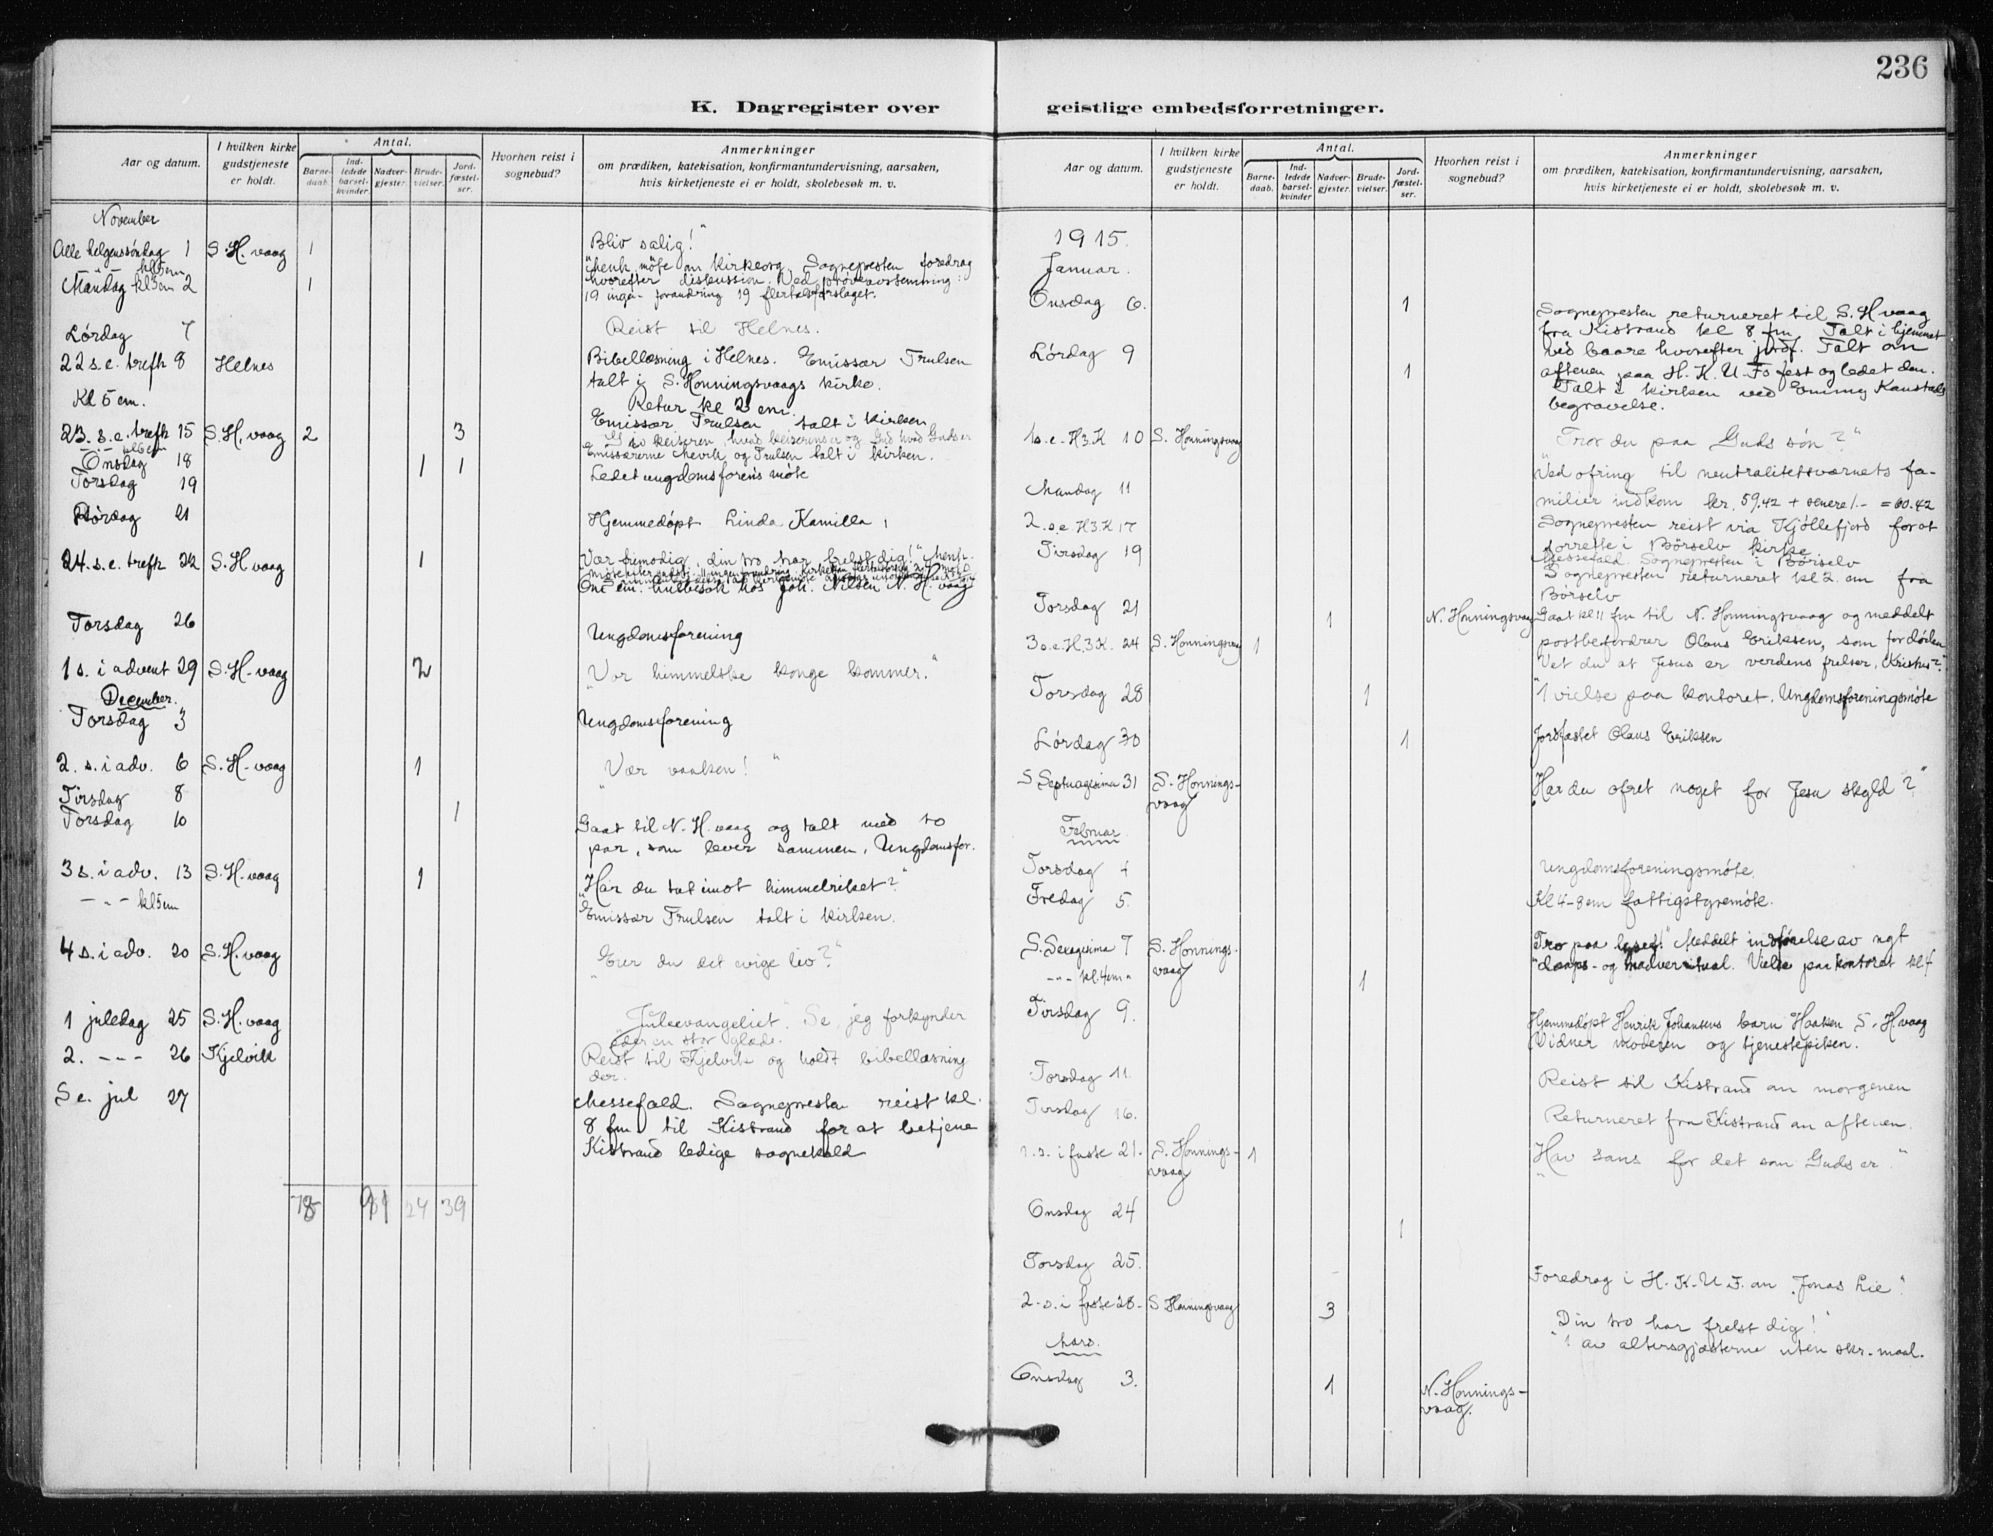 236
K. Dagregister over geistlige embedsforretninger.
Aar og datum.
I hvilken kirke gudstjeneste er holdt.
Antal.
Barnedaab.
Indledede barselkvinder.
Nadvergjester.
Brudevielser.
Jordfæstelser.
Hvorhen reist i sognebud?
Anmerkninger
om prædiken, katekisation, konfirmantundervisning, aarsaken,
hvis kirketjeneste ei er holdt, skolebesøk m. v.
November
Alle helgenssöndag 1 S. H. vaag 1 Bliv salig!"
kl 5 em møte om kirkeorg. Sognepresten foredrag
Mandag 2 1 hvorefter diskussion. Ved prøveavstemning:
19 ingen forandring 19 flertalsforslaget.
Lördag 7 Reist til Helnes.
22 s. e. trefh 8 Helnes Bibellæsning i Helnes. Emissær Trulsen
talt i S. Honningsvaags kirke.
Kl 5 em. Retur kl 2 em.
23. s. e. trefh 15 S. H. vaag 2 3 Emissær Trulsen talt i kirken
Gi keiseren, hvad keiserens er og Gud hvad Guds er
Onsdag 18 1 1 Emissærerne og Trulsen talt i kirken.
Torsdag 19 Ledet ungdomsforens møte
Lördag 21 Hjemmedøpt Linda Kamilla
24. s. e. trefh 22 S. H. vaag 1 Vær frimodig, din tro har frelst dig!"
em. husbesøk hos Joh. Nilsen N. H. vaag
Torsdag 26 Ungdomsforening
1 s. i advent 29 S. H. vaag 2 "Vor himmelske konge kommer."
December.
Torsdag 3 Ungdomsforening
2. s. i adv. 6 S. H. vaag 1 "Vær vaaken!"
Tirsdag 8
Torsdag 10 1 Gaat til N. H. vaag og talt med to
par, som lever sammen. Ungdomsfor.
3 s. i adv. 13 S. H. vaag 1 "Har du tat imot himmelriket?"
- " - kl 5 em Emissær Trulsen talt i kirken.
4 s. i adv. 20 S. H. vaag "Eier du det evige liv?"
1 juledag 25 S. H. vaag "Juleevangeliet". Se, jeg forkynder
eder en stor glæde.
2. - - - 26 Kjelvik Reist til Kjelvik og holdt bibellæsning
der.
S e. jul 27 Messefald. Sognepresten reist kl.
8 fm til Kistrand for at betjene
Kistrand ledige sognekald
78 24 39
Aar og datum.
I hvilken kirke gudstjeneste er holdt.
Antal.
Barnedaab.
Indledede barselkvinder
Nadvergjester.
Brudevielser.
Jordfæstelser.
Hvorhen reist i sognebud?
Anmerkninger
om prædiken, katekisation, konfirmantundervisning, aarsaken,
hvis kirketjeneste ei er holdt, skolebesøk m. v.
1915.
Januar.
Onsdag 6. 1 Sognepresten returneret til S. H vaag
fra Kistrand kl 8 fm. Talt i hjemmet
Lördag 9 ved baare hvorefter jordf. Talt om
1 aftenen paa H. K. U. Fs fest og ledet den.
Talt i kirken ved Emmy Kanstads
begravelse.
1 s. e. H 3 K 10 S. Honningsvaag "Tror du paa Guds søn?"
Ved ofring til neutralitetsværnets fa-
Mandag 11 milier indkom kr. 59.42 + senere 1.- = 60.42
2. s. e. H 3 K 17 Sognepresten reist via Kjøllefjord for at
forrette i Börselv kirke
Tirsdag 19 Messefald. Sognepresten i Börselv
Sognepresten returneret kl 2 em fra
Börselv
Torsdag 21 1 N. Honningsvaag Gaat kl 11 fm til N. Honningsvaag og meddelt
postbefordrer Olaus Eriksen, som
3 s. e. H. 3 K. 24 S. Honningsvaag 1 Vet du at Jesus er verdens frelser, Kristus?"
Torsdag 28 1 1 vielse paa kontoret. Ungdomsforeningsmöte
Lördag 30 1 Jordfæstet Olaus Eriksen
S. Septuagesima 31 S. Honnings-
vaag "Har du ofret noget for Jesu skyld?"
Februar
Torsdag 4 Ungdomsforeningsmöte.
Fredag 5. Kl 4-8 em fattigstyremöte.
S. Sexagesima 7 S. Honnings-
vaag "Tro paa lyset!" Meddelt indförelse av nyt
- " - kl. 4 em 1 daaps- og nadverritual. Vielse paa kontoret kl 4
Tirsdag 9. Hjemmedöpt Henrik Johansens barn Haaken S. H. vaag
Vidner moderen og tjenestepiken.
Torsdag 11. Reist til Kistrand om morgenen
Tirsdag 16. Returneret fra Kistrand om aftenen.
1. s. i faste 21. S. Honnings-
vaag 1 "Hav sans for det som Guds er."
Onsdag 24 1
Torsdag 25. Foredrag i H. K. U. F. om "Jonas Lie".
2. s. i faste 28. S Honningsvaag 3 Din tro har frelst dig!"
1 av altersgjæsterne uten skr.-maal.
Mars.
Onsdag 3. 1 N. Honnings-
vaag.